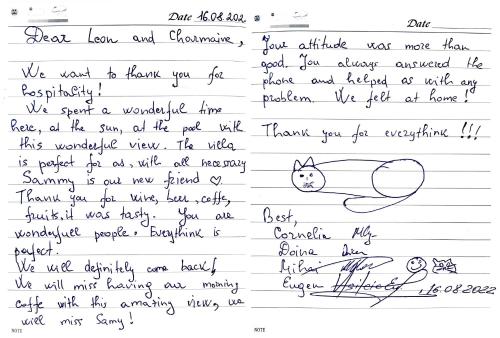 Date 16.08.202
Dear Leon and Charmaine,
We want to thank you for
hospitality!
We spent a wonderful time
here, at the sun, at the pool with
this wonderful view. The villa
is perfect for as, with all necessary
Sammy is our new friend ♡.
Thank you for wine, beer, coffe,
fruits, it was tasty. You are
wonderfull people. Everythink is
perfect.
We will definitely come back!
We will miss having our morning
coffe with this amazing view, we
will miss Samy!
NOTE
Date
Your attitude was more than
good. You always answered the
phone and helped as with any
problem. We felt at home!
Thank you for everythink !!!
Best,
Cornelia
Doina
Mihai
Eugen
, 16.08.2022
NOTE